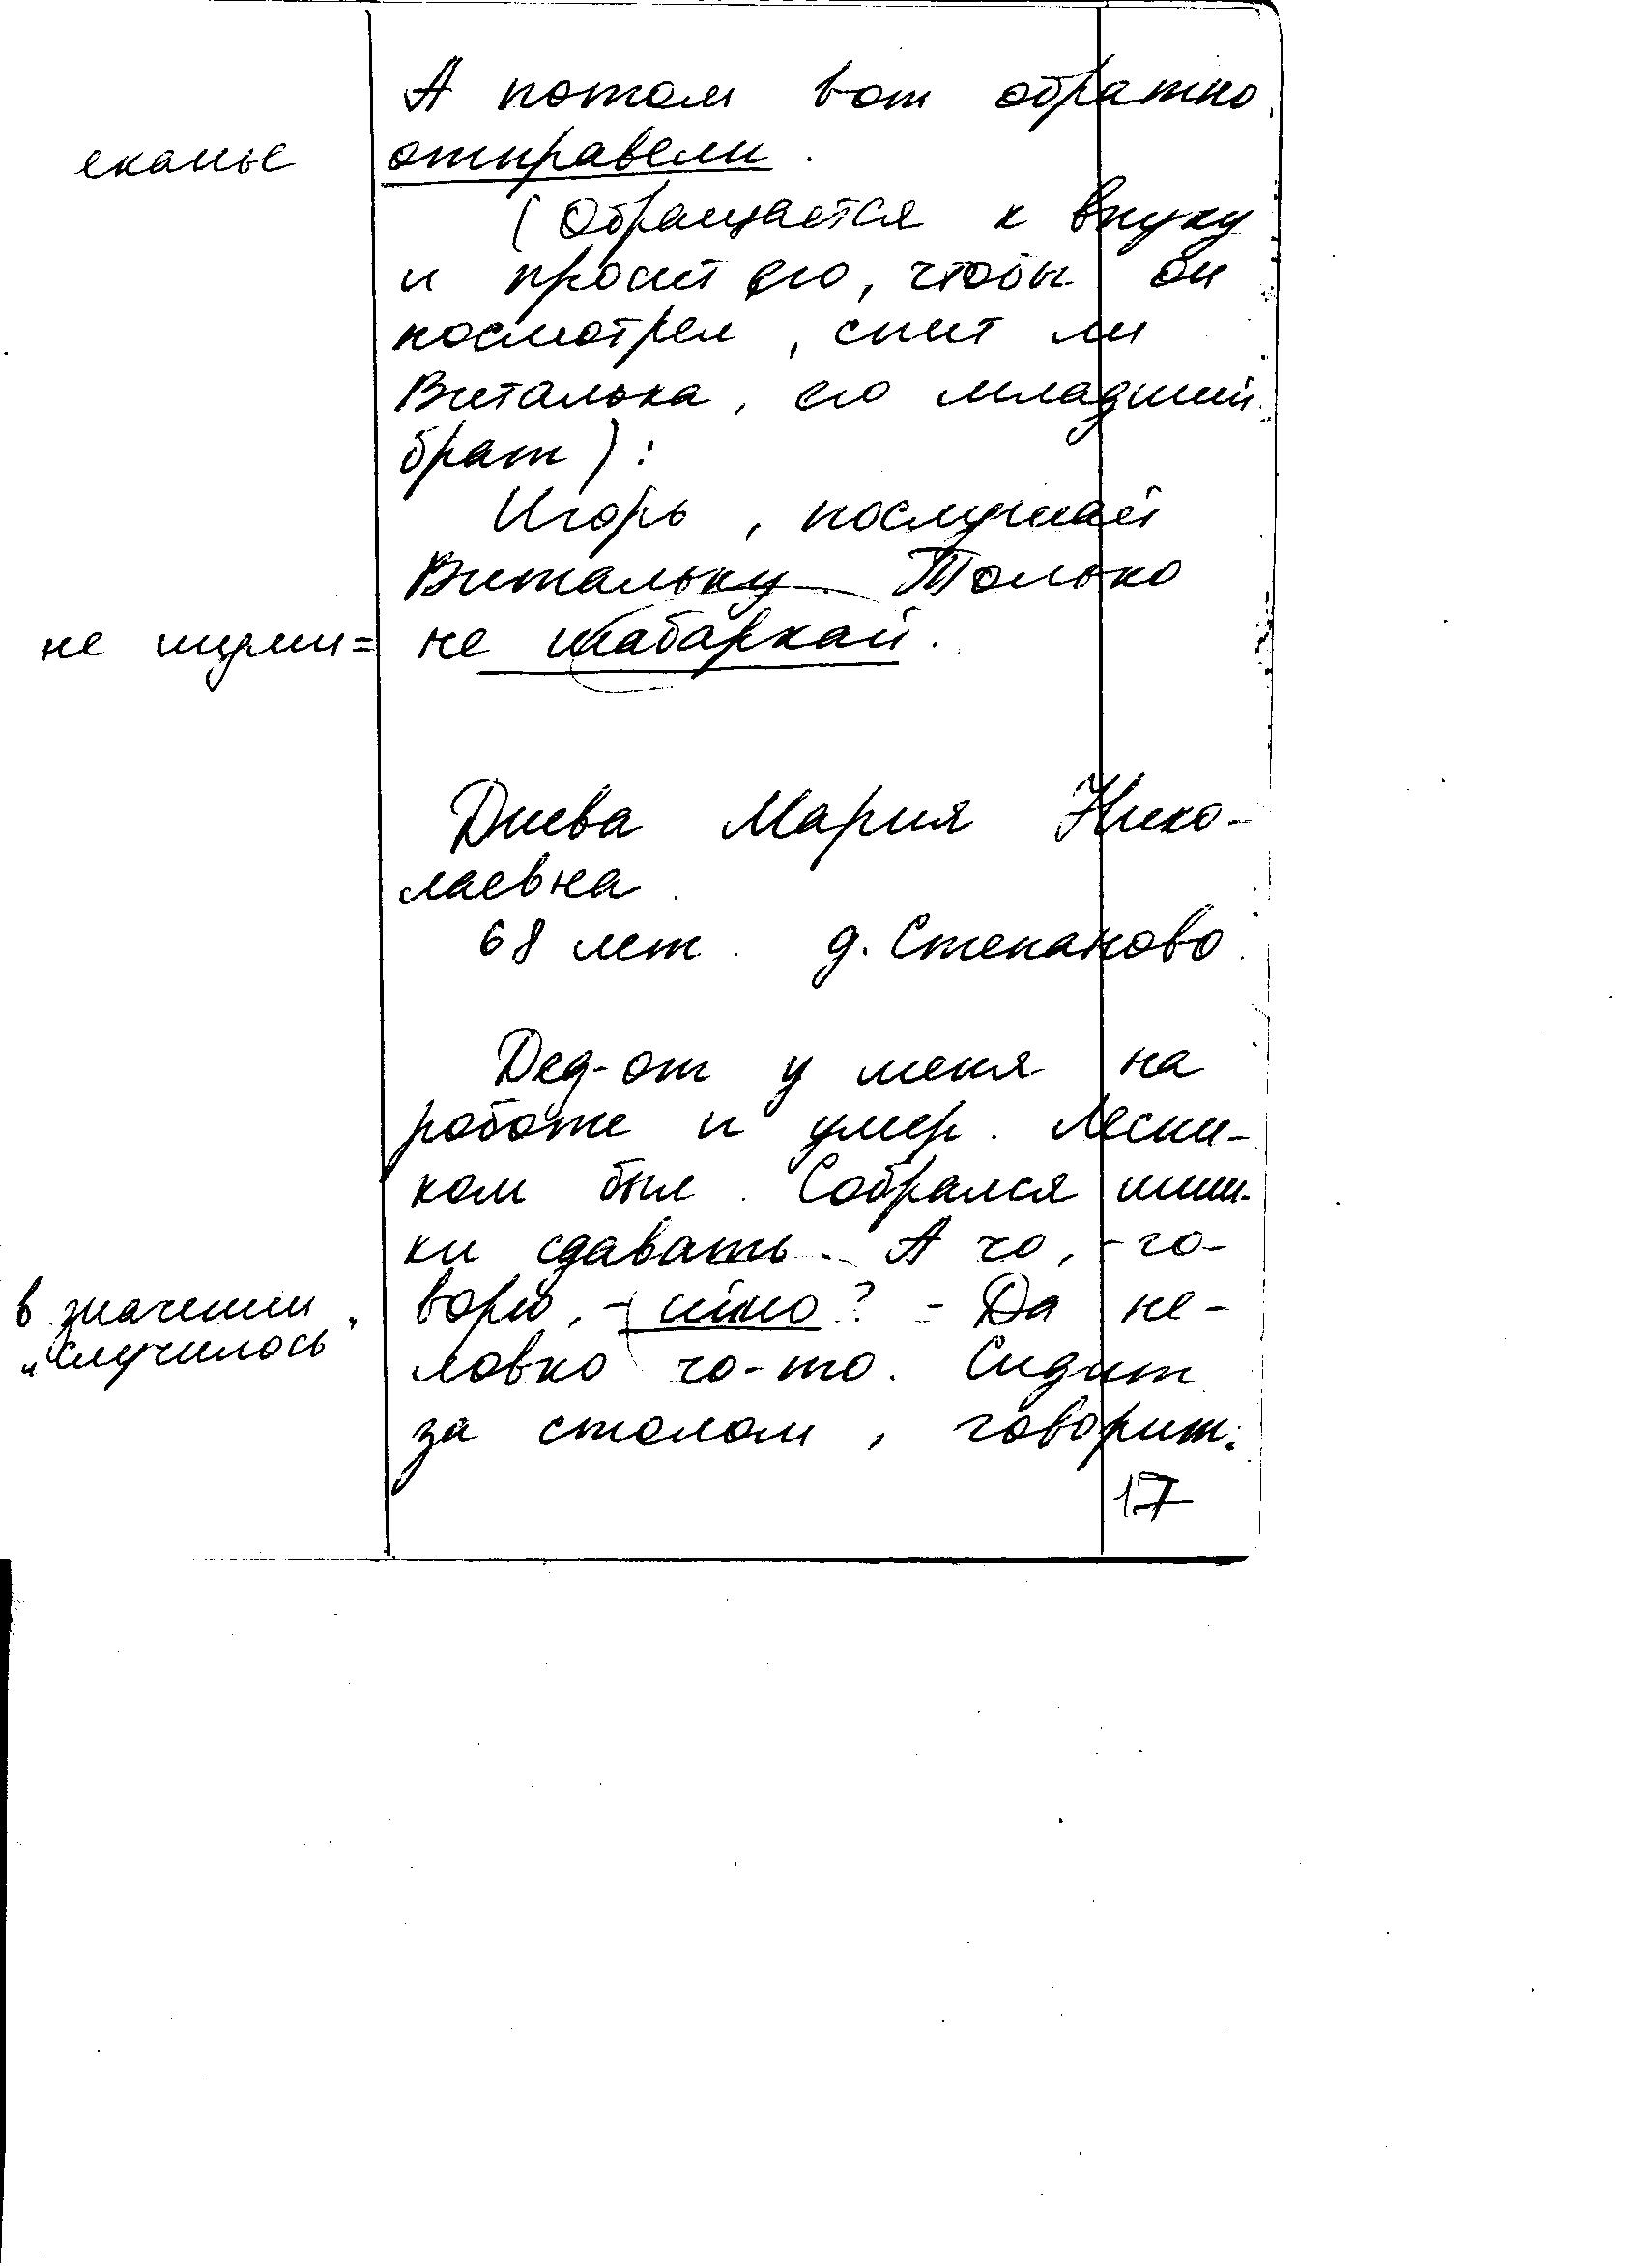 А потом вот обратно
еканье отправели.
(Обращается к внуку
и просит его, чтобы он
посмотрел, спит ли
Виталька, его младший
брат):
Игорь, послушай
Витальку. Только
не шуми = не шабаркай.
Диева Мария Нико-
лаевна
68 лет. д. Степаново.
Дед-от у меня на
работе и умер. Лесни-
ком был. Собрался шиш-
ки сдавать. А чо, - го-
в значении ворю, - ? - Да не-
"случилось ловко чо-то. Сидит
за столом, говорит:
17